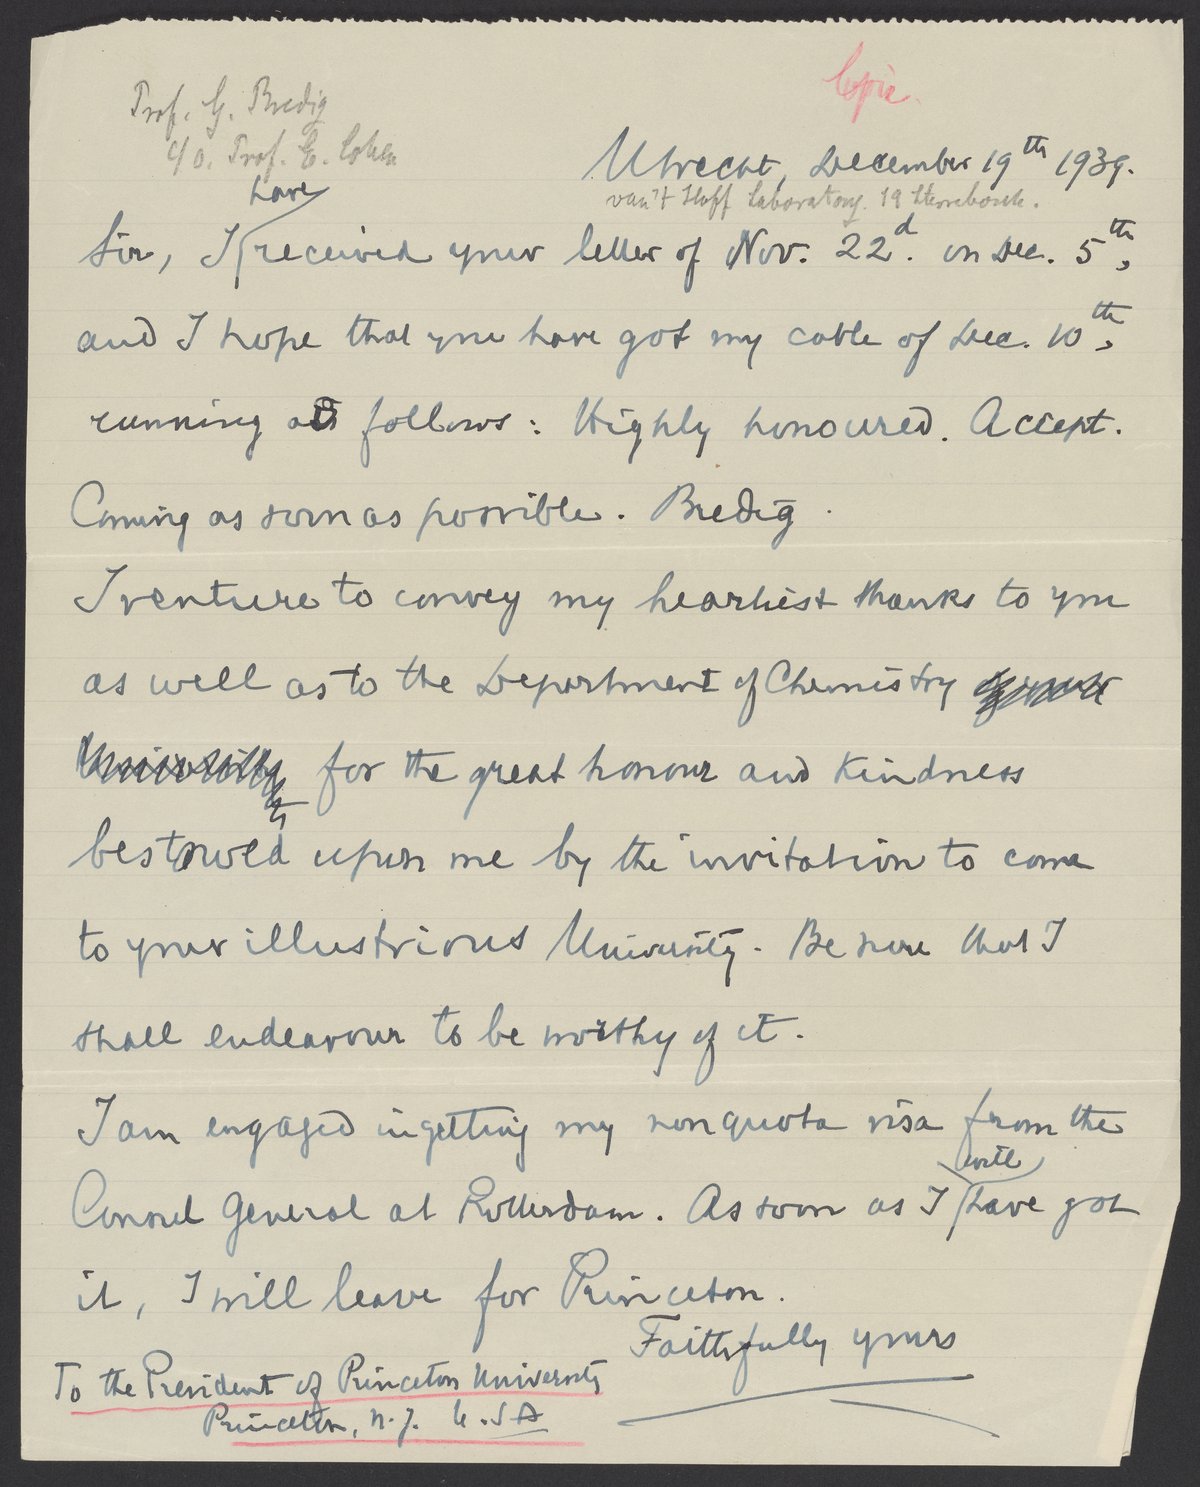 Copie.
Prof. G. Bredig
c/o. Prof. E. Cohen
Utrecht, December 19th 1939.
van't Hoff Laboratory. 19 Sterrebosch.
have
Sir, I received your letter of Nov. 22d. on Dec. 5th,
and I hope that you have got my cable of Dec. 10th,
running as follows: Highly honoured. Accept.
Coming as soon as possible. Bredig.
I venture to convey my heartiest thanks to you
as well as to the Department of Chemistry of your
University for the great honour and kindness
bestowed upon me by the invitation to come
to your illustrious University. Be sure that I
shall endeavour to be worthy of it.
I am engaged in getting my nonquota visa from the
will
Consul General at Rotterdam. As soon as I have got
it, I will leave for Princeton.
Faithfully yours
To the President of Princeton University
Princeton, N.J. U.S.A